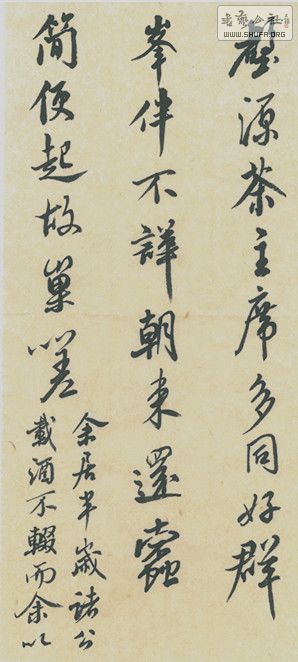 壑源茶主席多同好群
峯伴不譁朝来還蠹
簡便起故巢嗟
余居半歲諸公
載酒不輟而余以
書藝公社
WWW.SHUFA.ORG